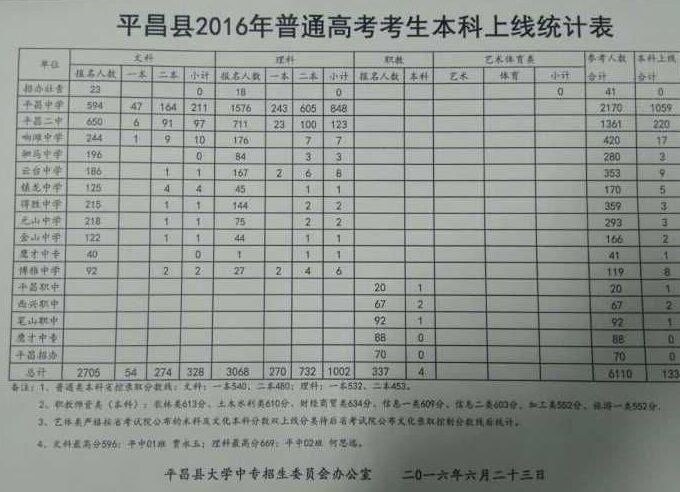 平昌县2016年普通高考考生本科上线统计表
单位 文科 理科 职教 艺术体育类 参考人数合计 本科上线合计
报名人数 一本 二本 小计 报名人数 一本 二本 小计 报名人数 本科 艺术 体育 小计
招办社青 23 0 18 0 0 41 0
平昌中学 594 47 164 211 1576 243 605 848 2170 1059
平昌二中 650 6 91 97 711 23 100 123 1361 220
响滩中学 244 1 9 10 176 7 7 420 17
驷马中学 196 0 84 3 3 280 3
云台中学 186 1 1 167 2 6 8 353 9
镇龙中学 125 4 4 45 1 1 170 5
得胜中学 215 1 1 144 2 2 359 3
元山中学 218 1 1 75 2 2 293 3
金山中学 122 1 1 44 1 1 166 2
鹰才中专 40 0 1 1 1 41 1
博雅中学 92 2 2 27 2 4 6 119 8
平昌职中 20 1 20 1
西兴职中 67 2 67 2
笔山职中 92 1 92 1
鹰才中专 88 0 88 0
平昌招办 70 0 70 0
总计 2705 54 274 328 3068 270 732 1002 337 4 6110 133
备注：1、普通类本科省控录取分数线：文科：一本540、二本480；理科：一本532、二本453。
2、职教师资类（本科）：农林类613分、土木水利类610分、财经商贸类634分、信息一类609分、信息二类603分、加工类552分、旅游一类552分。
3、艺体类严格按省考试院公布的本科及文化本科分数双上线分类待后省考试院公布文化录取控制分数线后统计。
4、文科最高分596：平中01班 贾永玉；理科最高分669：平中02班 何思远。
平昌县大学中专招生委员会办公室 二〇一六年六月二十三日